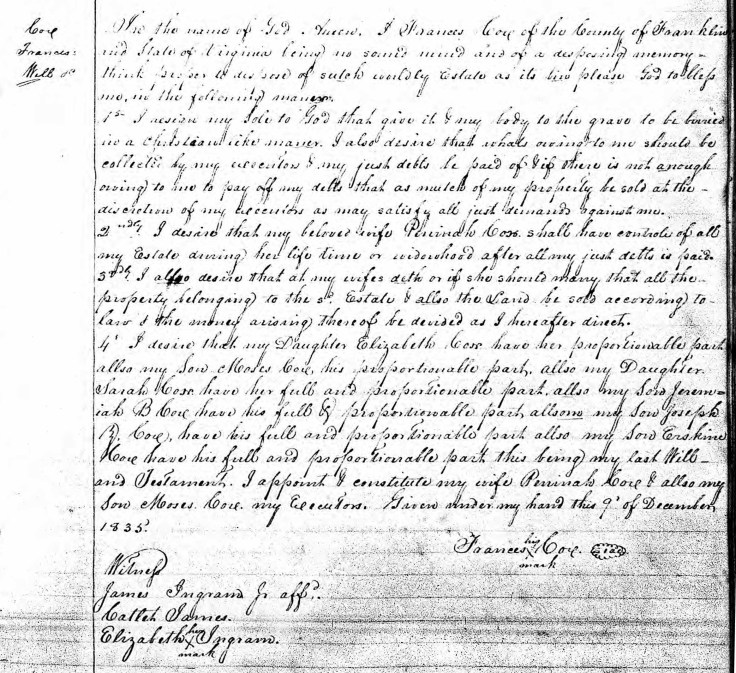 Coxe
Frances
Will &c
In the name of God Amen. I Frances Coxe of the County of Franklin
and State of Virginia being no sound mind and of a desposing memory -
think proper to dispose of sutch worldly Estate as its bin please God to bless
me, in the following maner.
1st I resign my Sole to God that give it & my body to the grave to be buried
in a Christian like maner. I also desire that whats owing to me should be
collected by my executors & my just debts be paid of & if there is not anough
owing to me to pay off my debts that as mutch of my property be sold at the -
discretion of my executors as may satisfy all just demands against me.
2ndly I desire that my beloved wife Peninah Coxe. shall have controle of all
my Estate during her life time or widowhood after all my just debts is paid.
3rdly I allso desire that at my wifes deth or if she should marry, that all the -
property belonging to the sd. Estate & allso the Land be sold according to -
law & the money arising thereof be devided as I hereafter direct.
4' I desire that my Daughter Elizabeth Coxe have her proportionable part
allso my Son Moses Coxe, his proportionable part, allso my Daughter
Sarah Coxe have her full and proportionable part, allso my Son Jerem=
iah B Coxe have his full & proportionable part, allso my Son Joseph
B. Coxe, have his full and proportionable part allso my Son Erskine
Coxe have his full and proportionable part this being my last Will -
and Testament. I appoint & constitute my wife Peninah Coxe & allso my
Son Moses Coxe. my Executors. Given under my hand this 9' of December,
1835.
Frances his X mark Coxe. Seal
Witness
James Ingram Jr affd.
Catleh James.
Elizabeth her X mark Ingram.